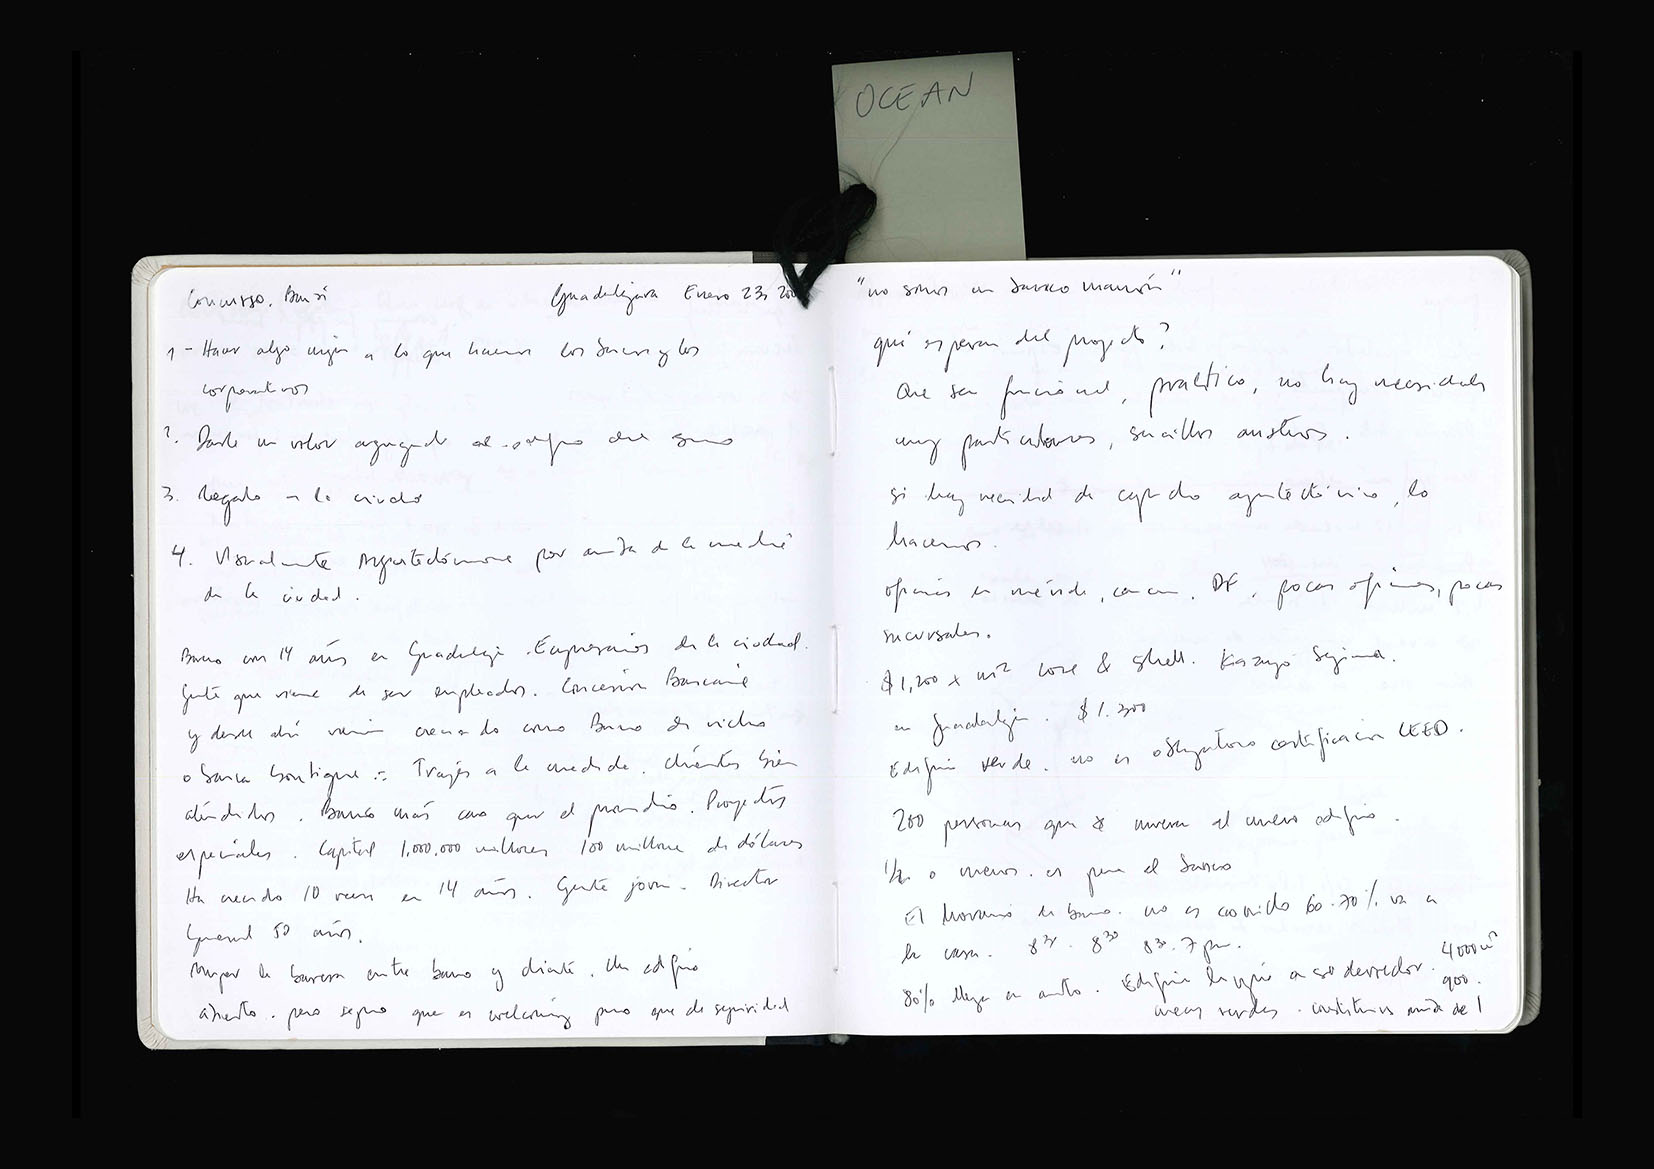 OCEAN
Concurso. Bansi Guadalajara Enero 23, 200
1 - Hacer algo mejor a lo que hacen los bancos y los
corporativos
2. Darle un valor agregado al
3. Regalo a la ciudad
4. Visualmente Arquitectónicamente por arriba de la media
de la ciudad.
Banco con 14 años en Guadalajara. Empresarios de la ciudad.
gente que viene de ser empleados. Concesión Bancaria
y desde ahí vienen creciendo como Banco de nicho
o banca boutique ∴ Trajes a la medida. clientes bien
atendidos. Banco más caro que el promedio. Proyectos
especiales. Capital 1,000,000 millones 100 millones de dólares
Ha crecido 10 veces en 14 años. Gente joven. Director
General 50 años.
Romper la barrera entre banco y cliente. Un edificio
abierto. pero seguro que es welcoming pero que de seguridad
"no somos un banco marrón"
qué esperan del proyecto?
Que sea funcional, práctico, no hay necesidades
muy particulares, sencillos austeros.
si hay necesidad de capricho arquitectónico, lo
hacemos.
oficinas en mérida, cancun, DF, pocas oficinas, pocas
sucursales.
$1,200 x m² core & shell. Kazuyo Sejima.
en Guadalajara. $1.300
Edificio verde. no es obligatoria certificación LEED.
200 personas que se mueven al nuevo edificio.
1/2 o menos. es para el banco
El horario de banco. no es corrido 60-70% va a
la casa. 8³⁰. 8³⁰ 8³⁰. 7 pm.
80% llega en auto. Edificio a su derredor. 4000 m²
900.
areas verdes. construimos arriba de 1